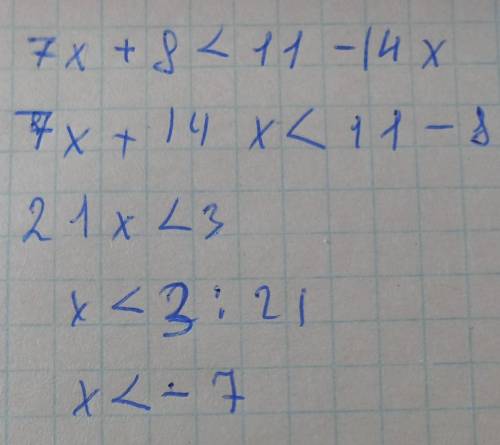 7x + 8 < 11 - 14x
7x + 14 x < 11 - 8
21x < 3
x < 3 : 21
x < - 7